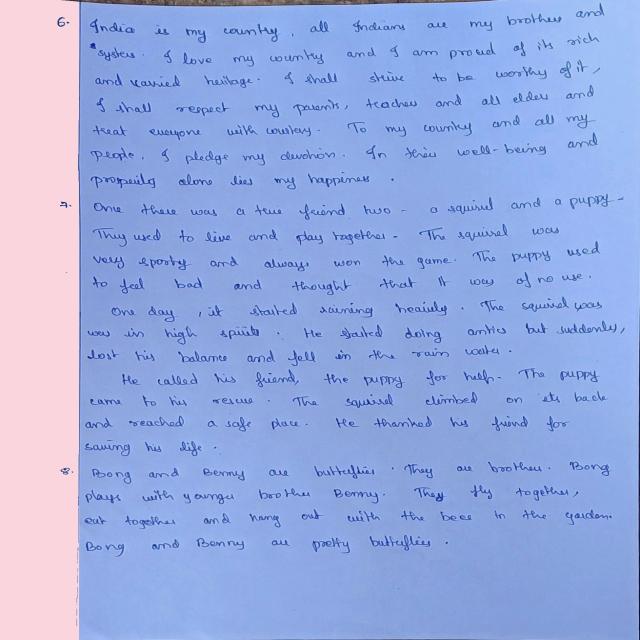 6. India is my country, all Indians are my brothers and
systers. I love my country and I am proud of its rich
and varied heritage. I shall strive to be worthy of it,
I shall respect my parents, teachers and all elders and
treat everyone with courtesy. To my country and all my
people, I pledge my devotion. In their well-being and
prosperity alone lies my happiness.
7. Once there was a true friend two - a squirrel and a puppy -
They used to live and play together - The squirrel was
very sporty and always won the game. The puppy used
to feel bad and thought that It was of no use.
One day, it started raining heavily. The squirrel was
was in high spirits. He started doing antics but suddenly,
lost his balance and fell in the rain water.
He called his friend, the puppy for help. The puppy
came to his rescue. The squirrel climbed on its back
and reached a safe place. He thanked his friend for
saving his life.
8. Bong and Benny are butterflies. They are brothers. Bong
plays with younger brother Benny. They fly together,
eat together and hang out with the bees in the garden.
Bong and Benny are pretty butterflies.